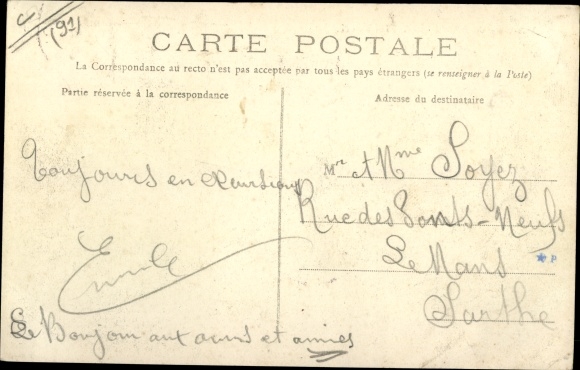 (91)
CARTE POSTALE
La Correspondance au recto n'est pas acceptée par tous les pays étrangers (se renseigner à la Poste)
Partie réservée à la correspondance
Toujours en
Emile
Le Bonjour aux amis et amies
Adresse du destinataire
Mr et Mme Soyez
Rue des Ponts-Neufs
Le Mans
Sarthe